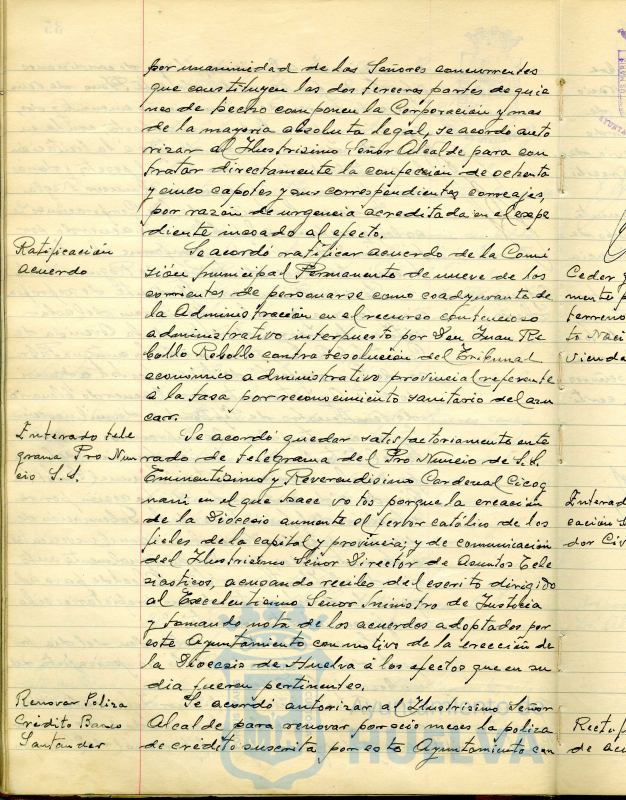 por unanimidad de los Señores concurrentes
que constituyen las dos terceras partes de quie
nes de hecho componen la Corporación y mas
de la mayoria absoluta legal, se acordó auto
rizar al Ilustrisimo Señor Alcalde para con
tratar directamente la confección de ochenta
y cinco capotes y sus correspondientes correajes,
por razón de urgencia acreditada en el expe
diente incoado al efecto.
Ratificación
acuerdo
Se acordó ratificar acuerdo de la Comi
sión municipal Permanente de nueve de los
corrientes de personarse como coadyuvante de
la Administración en el recurso contencioso
administrativo interpuesto por Don Juan Re
bollo Rebollo contra resolución del Tribunal
económico administrativo provincial referente
á la tasa por reconocimiento sanitario del azu
car.
Enterado tele
grama Pro Nun
cio S. S.
Se acordó quedar satisfactoriamente ente
rado de telegrama del Pro Nuncio de S. S.
Eminentisimo y Reverendisimo Cardenal Cicog
nani en el que hace votos porque la creación
de la Diocesis aumente el fervor católico de los
fieles de la capital y provincia; y de comunicación
del Ilustrisimo Señor Director de Asuntos Ecle
siasticos, acusando recibo del escrito dirigido
al Excelentisimo Señor Ministro de Justicia
y tomando nota de los acuerdos adoptados por
este Ayuntamiento con motivo de la erección de
la Diocesis de Huelva á los efectos que en su
dia fueren pertinentes.
Renovar Poliza
Crédito Banco
Santander
Se acordó autorizar al Ilustrisimo Señor
Alcalde para renovar por seis meses la poliza
de crédito suscrita por este Ayuntamiento con
HUELVA
Ceder
mente
terreno
to Naci
vienda
Enterad
cación
dor Civ
Rectif
de acu